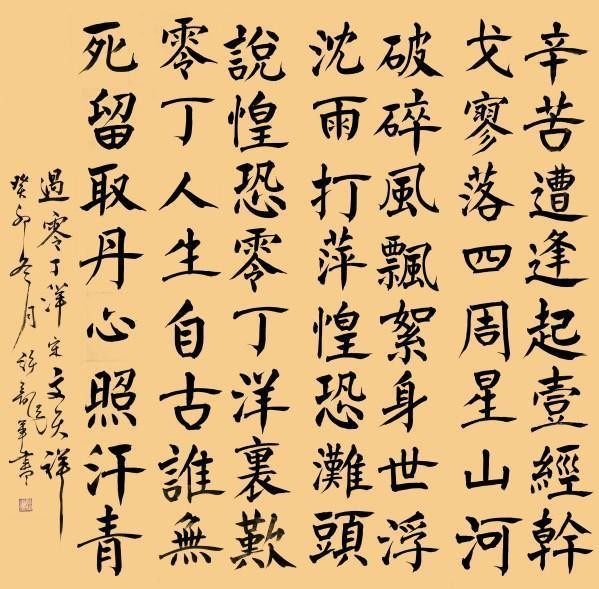 辛苦遭逢起壹經幹
戈寥落四周星山河
破碎風飄絮身世浮
沈雨打萍惶恐灘頭
說惶恐零丁洋裏歎
零丁人生自古誰無
死留取丹心照汗青
過零丁洋宋文天祥
癸卯冬月 書